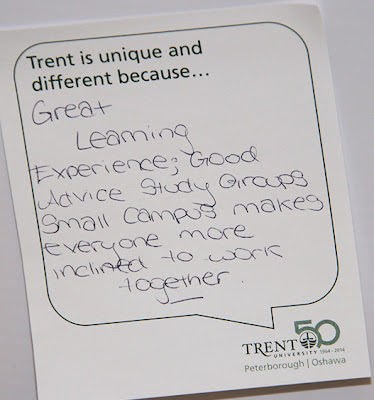 Trent is unique and
different because...
Great
Learning
Experience; Good
Advice Study Groups
Small Campus makes
everyone more
inclined to work
together.
TRENT 50
UNIVERSITY 1964 - 2014
Peterborough | Oshawa